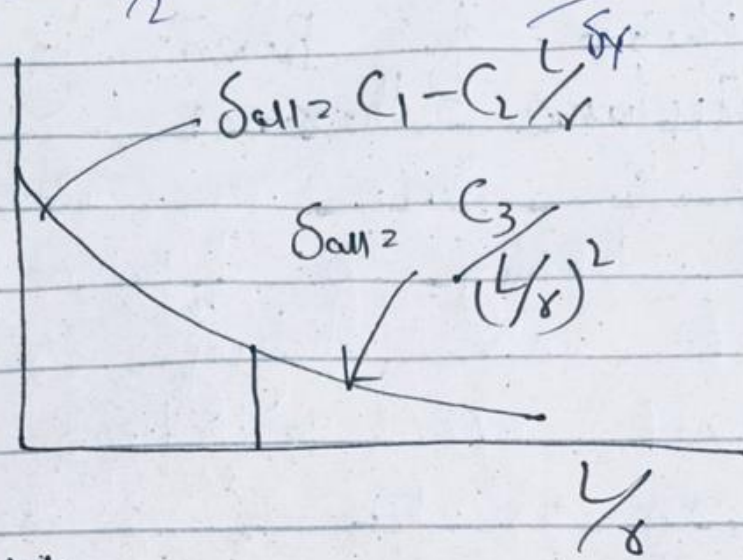 δall = C₁ - C₂ L/r
δall = C₃/(L/r)²
L/r